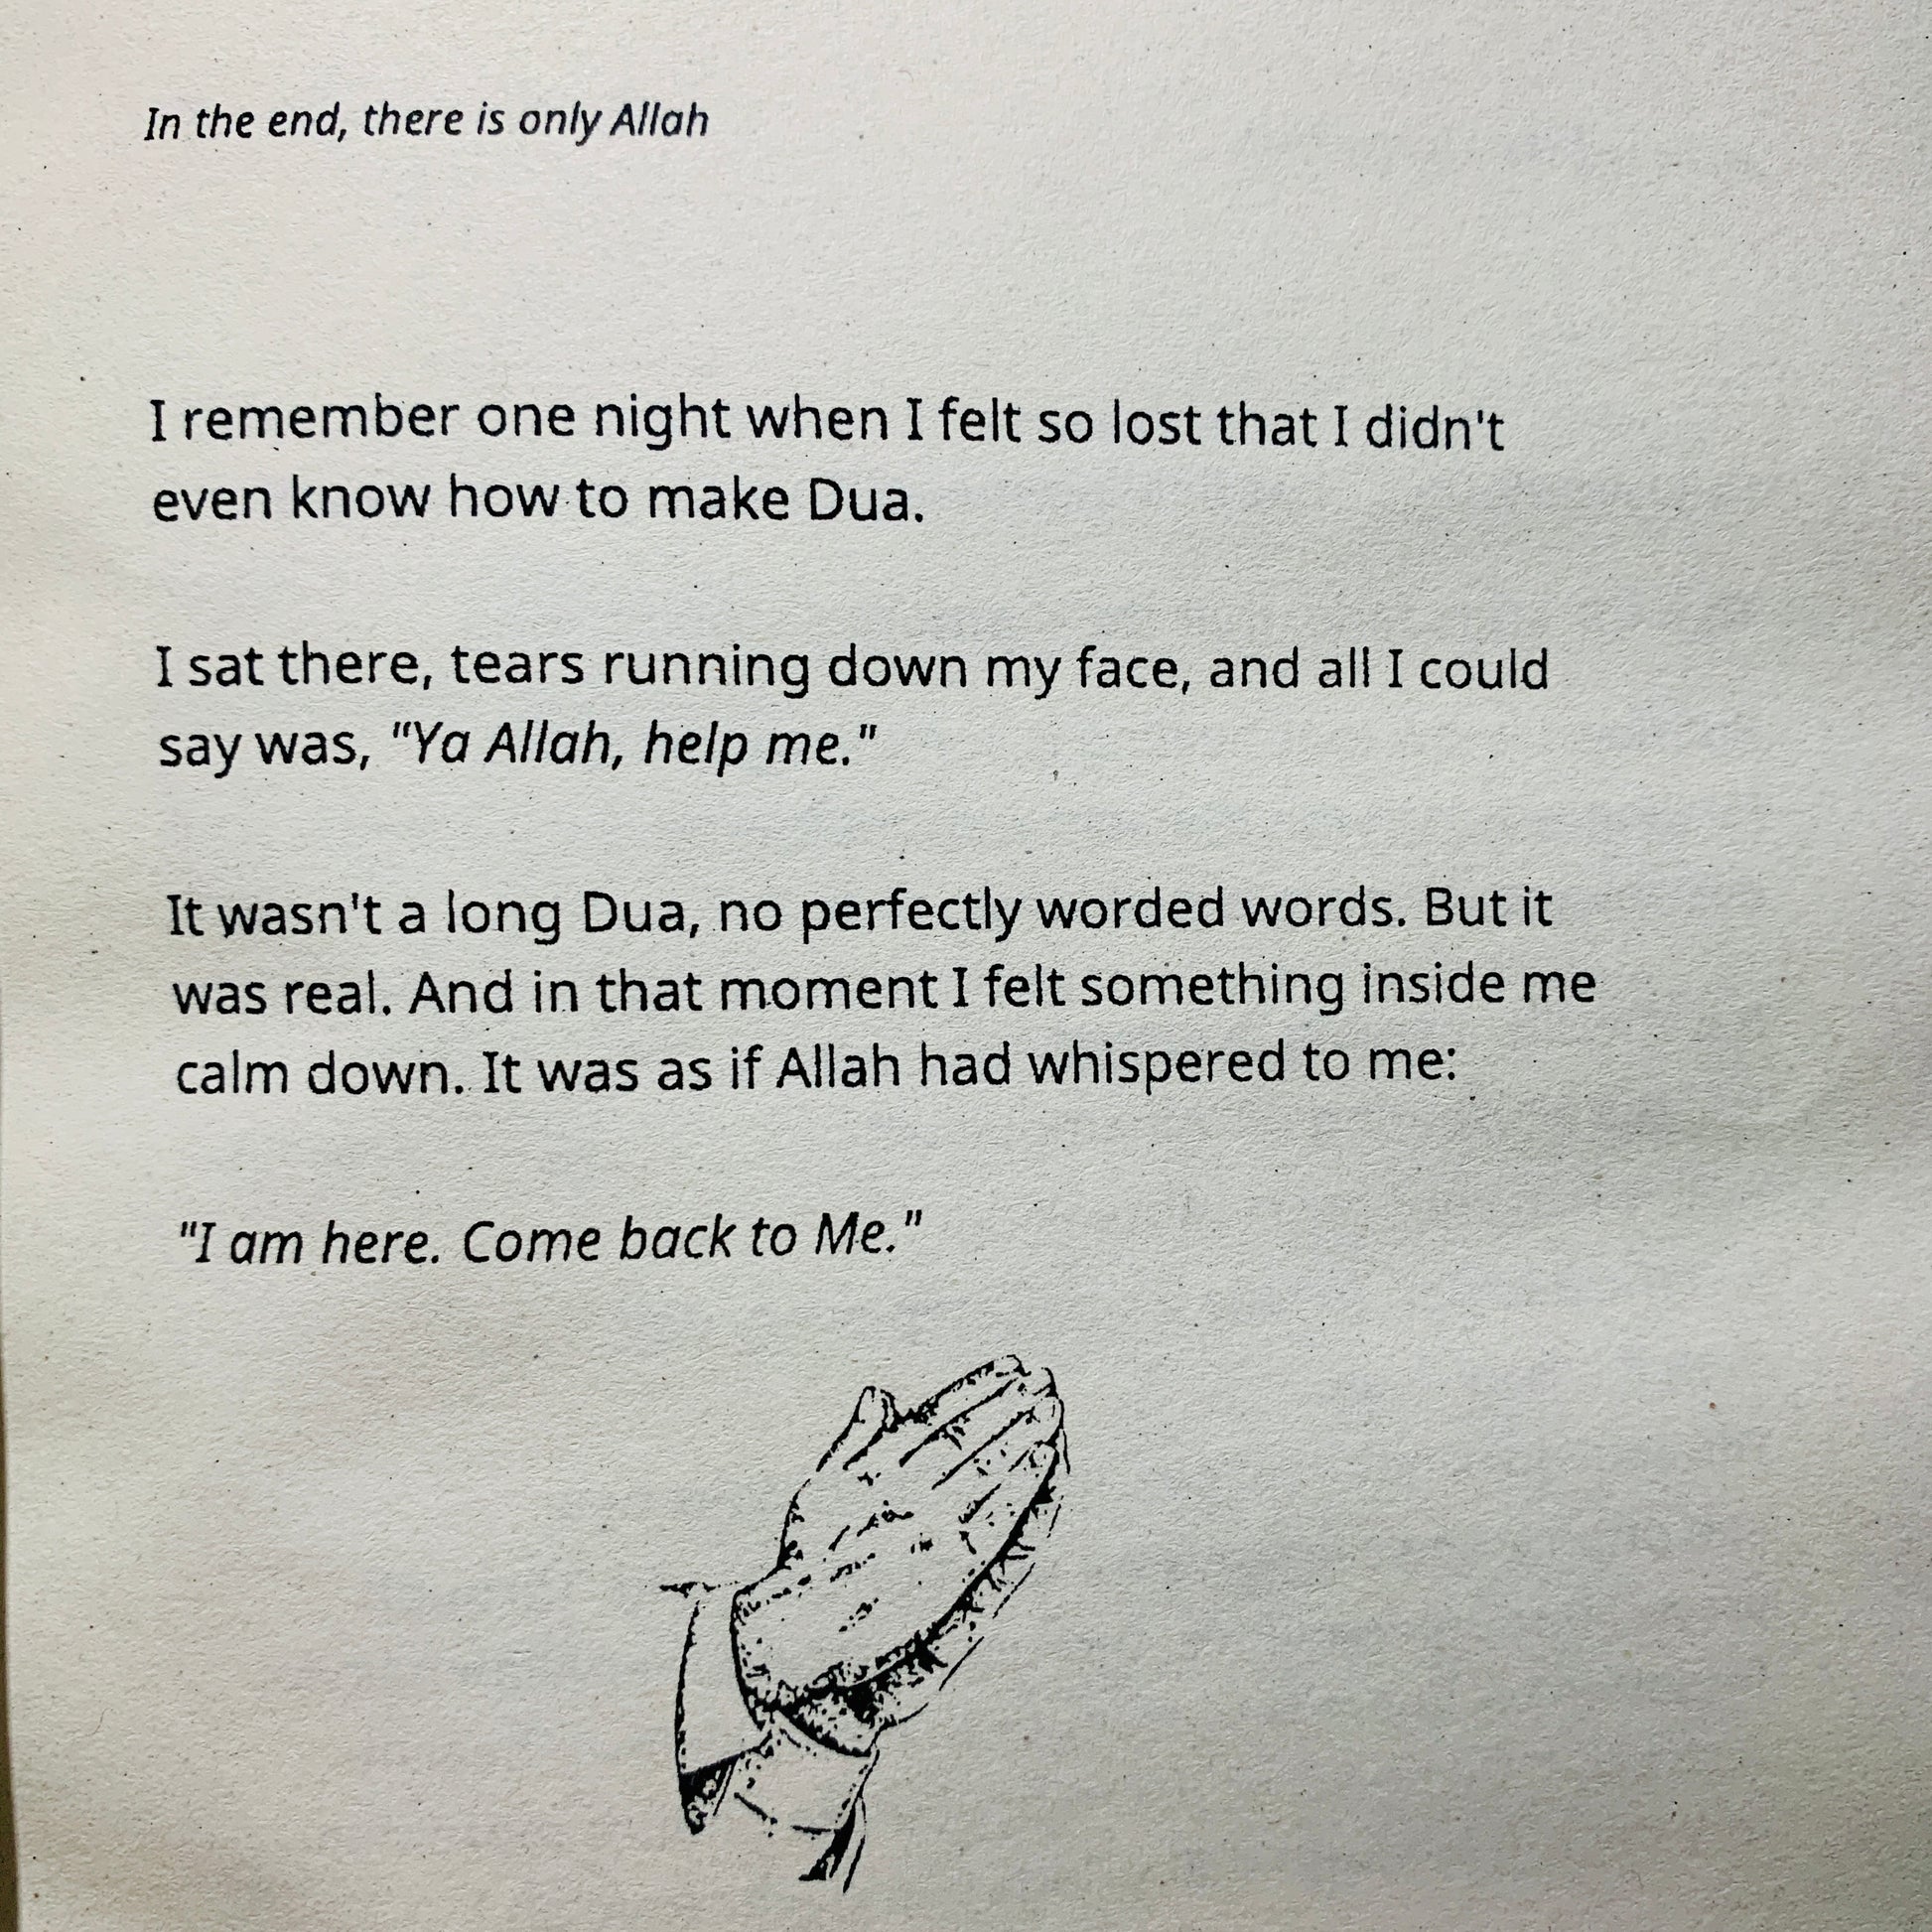 In the end, there is only Allah
I remember one night when I felt so lost that I didn't
even know how to make Dua.
I sat there, tears running down my face, and all I could
say was, "Ya Allah, help me."
It wasn't a long Dua, no perfectly worded words. But it
was real. And in that moment I felt something inside me
calm down. It was as if Allah had whispered to me:
"I am here. Come back to Me."